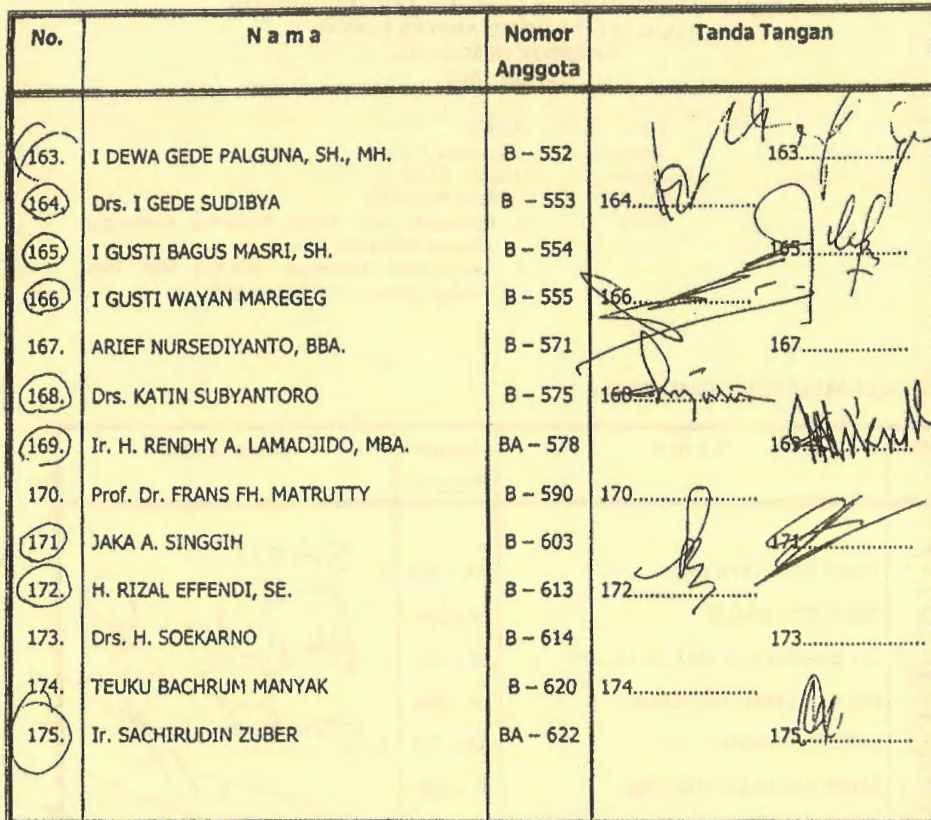 No. N a m a Nomor Anggota Tanda Tangan
163. I DEWA GEDE PALGUNA, SH., MH. B – 552 163..................
164. Drs. I GEDE SUDIBYA B – 553 164..................
165. I GUSTI BAGUS MASRI, SH. B – 554 165..................
166. I GUSTI WAYAN MAREGEG B – 555 166..................
167. ARIEF NURSEDIYANTO, BBA. B – 571 167..................
168. Drs. KATIN SUBYANTORO B – 575 168..................
169. Ir. H. RENDHY A. LAMADJIDO, MBA. BA – 578 169..................
170. Prof. Dr. FRANS FH. MATRUTTY B – 590 170..................
171 JAKA A. SINGGIH B – 603 171..................
172. H. RIZAL EFFENDI, SE. B – 613 172..................
173. Drs. H. SOEKARNO B – 614 173..................
174. TEUKU BACHRUM MANYAK B – 620 174..................
175. Ir. SACHIRUDIN ZUBER BA – 622 175..................